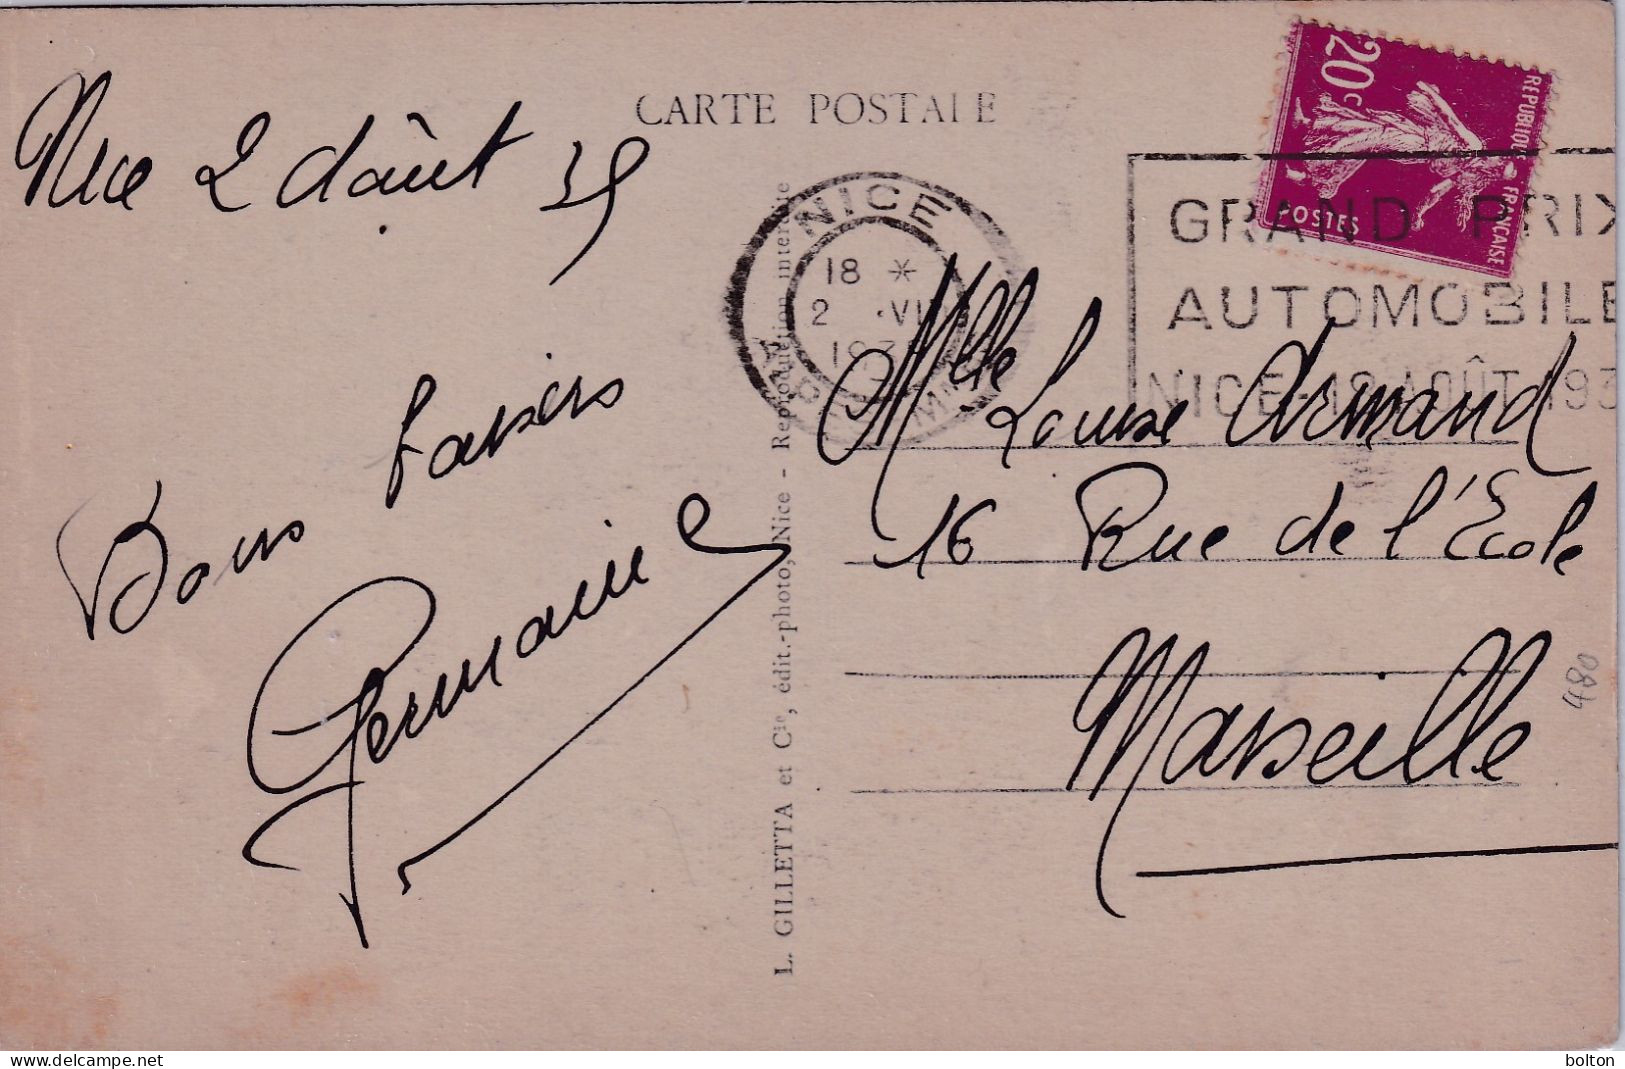 CARTE POSTALE
Nice 2 d'août 35
Bons baisers
Germaine
L. GILLETTA et Cie, édit.-photo, Nice - Reproduction interdite
20c
REPUBLIQUE FRANÇAISE
POSTES
NICE
18 *
2 VII
193
GRAND PRIX
AUTOMOBILE
NICE 18 AOÛT 193
Mlle Louise Armand
16 Rue de l'Ecole
Marseille
480
delcampe.net
bolton